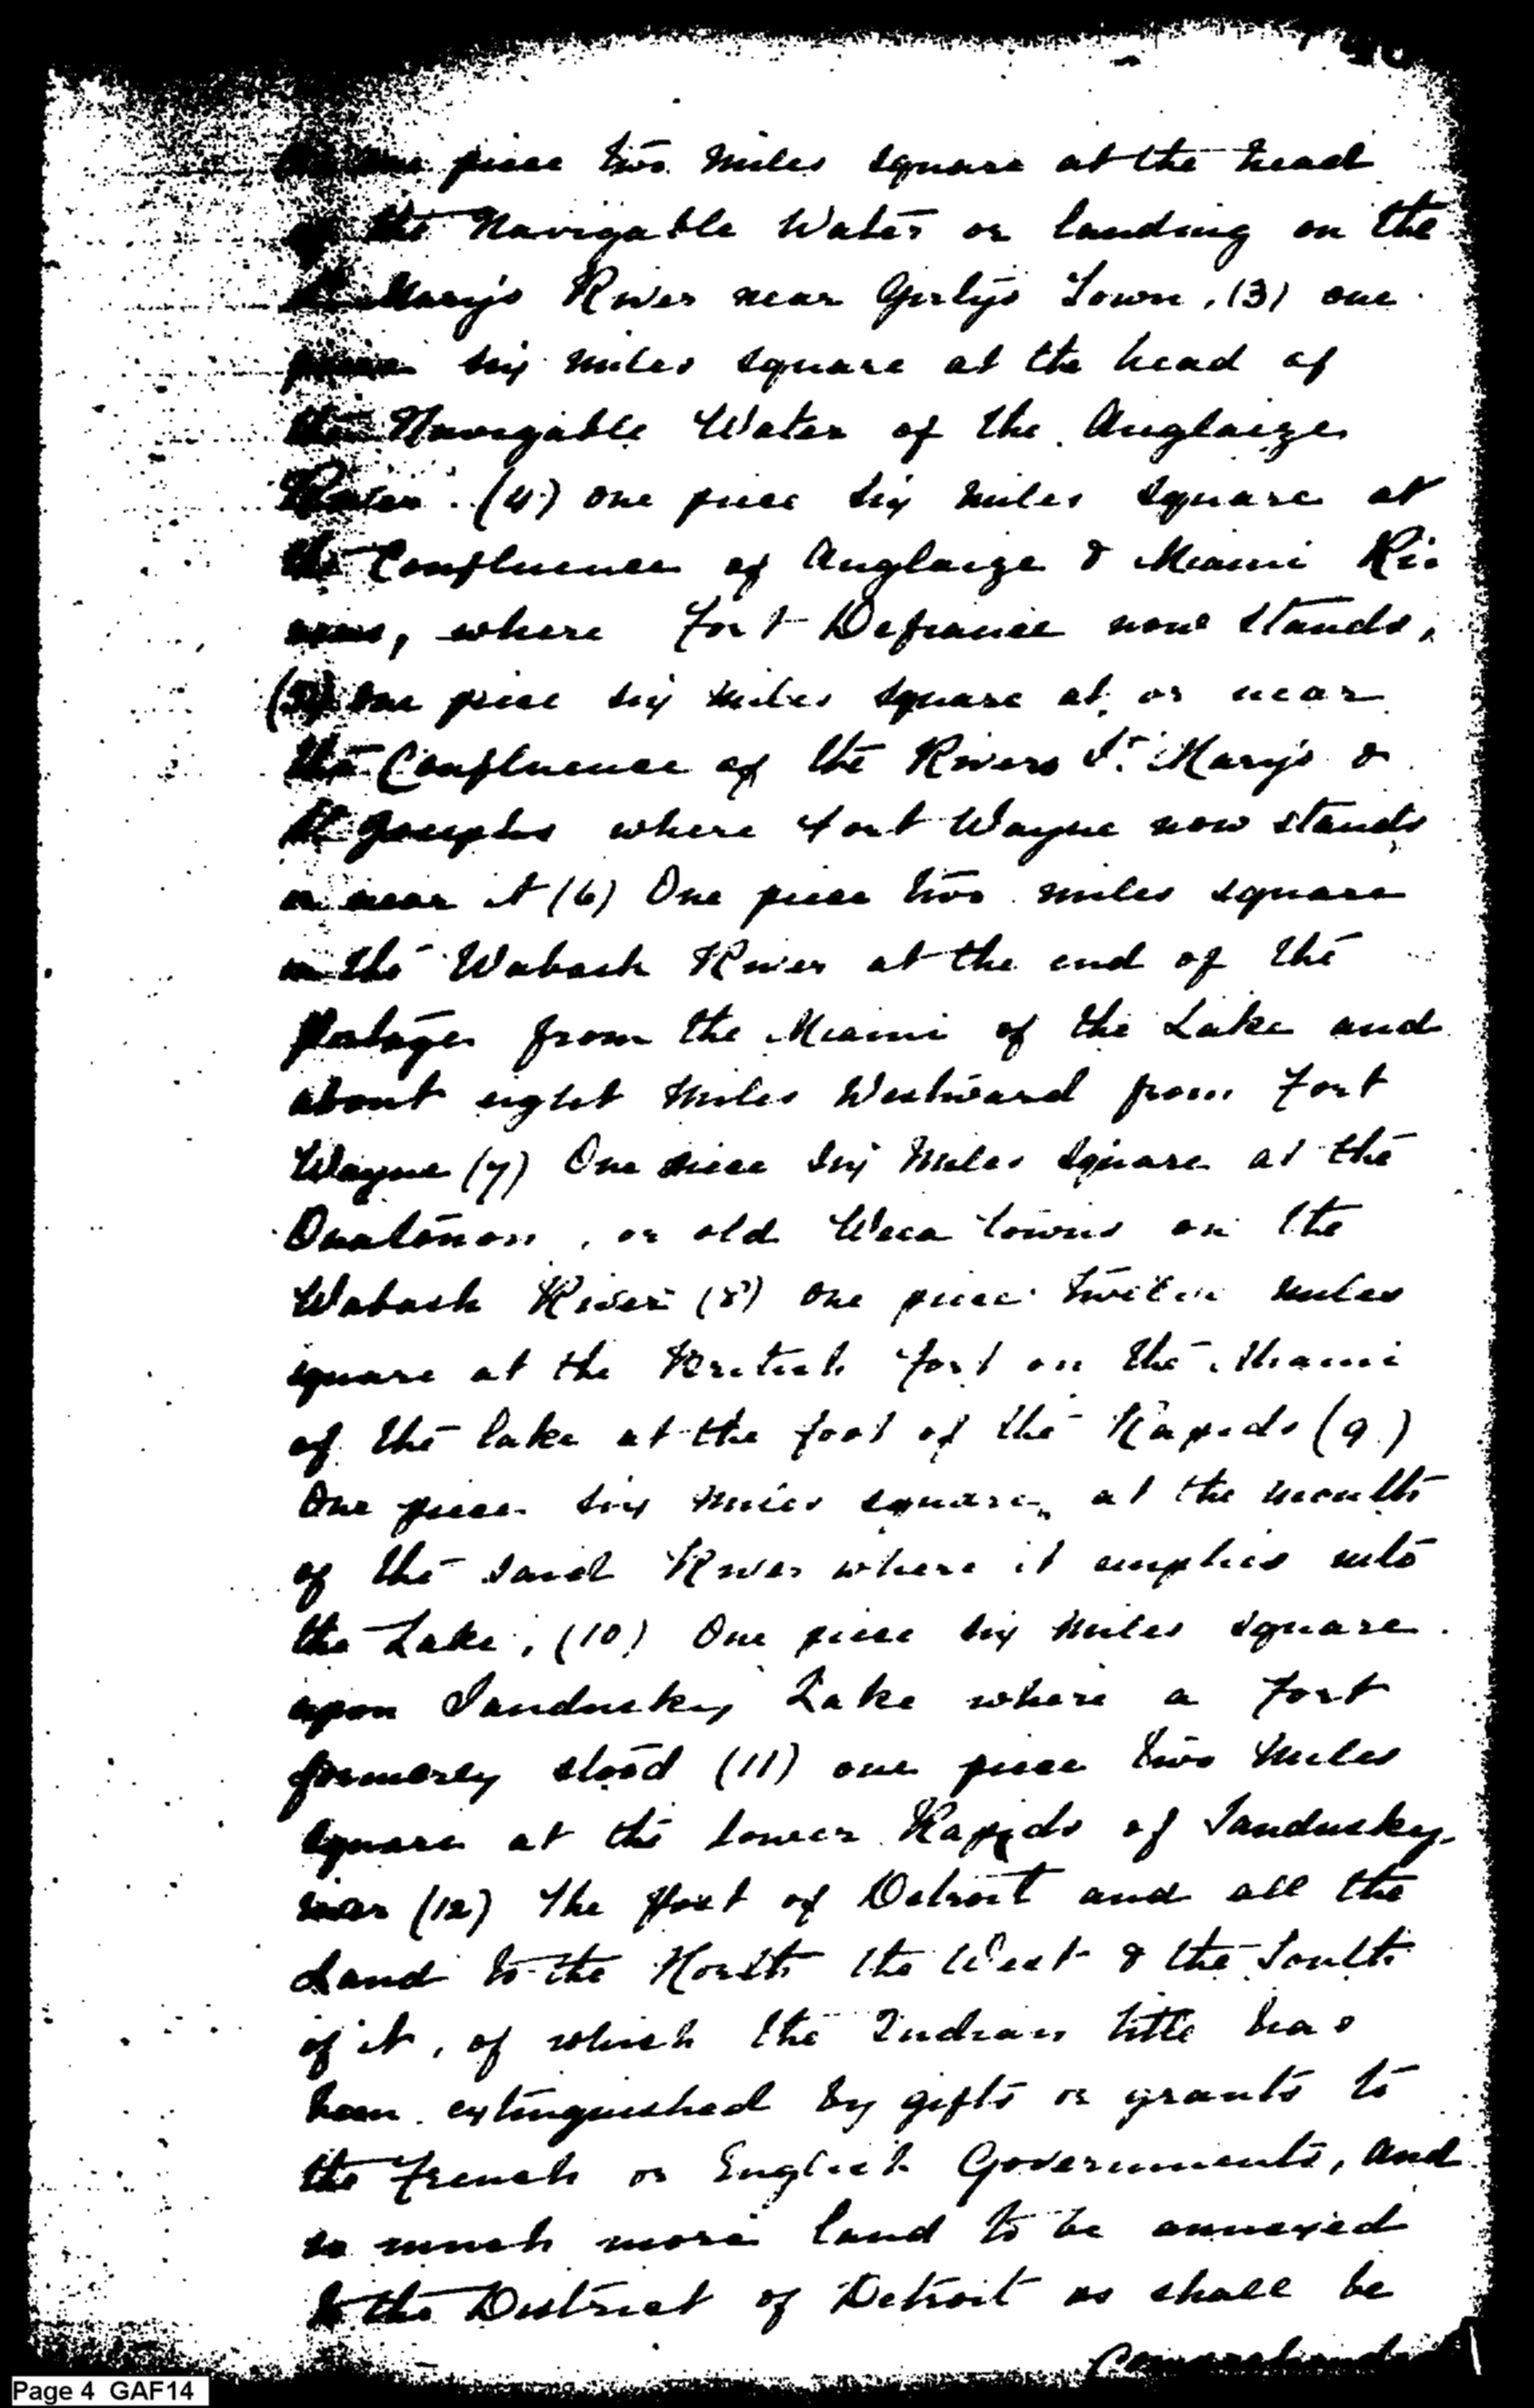 one piece two Miles square at the head
of the Navigable Water or landing on the
St Mary's River near Girty's Town, (3) one
piece six miles square at the head of
the Navigable Water of the Auglaize
River. (4) one piece six Miles square at
the Confluence of Auglaize & Miami Ri-
vers, where Fort Defiance now stands,
(5) One piece six Miles square at or near
the Confluence of the Rivers St. Mary's &
St Josephs where fort Wayne now stands
or near it (6) One piece two miles square
on the Wabash River at the end of the
Portage from the Miami of the Lake and
about eight Miles Westward from Fort
Wayne (7) One piece six Miles Square at the
Ouatanon, or old Weea towns on the
Wabash River (8) One piece twelve miles
square at the British fort on the Miami
of the lake at the foot of the Rapids (9.)
One piece six miles square at the mouth
of the said River where it empties into
the Lake, (10) One piece six Miles square
upon Sandusky Lake where a Fort
formerly stood (11) one piece two Miles
square at the lower Rapids of Sandusky
river (12) The Post of Detroit and all the
Land to the North the West & the South
of it, of which the Indian title has
been extinguished by gifts or grants to
the French or English Governments, and
so much more land to be annexed
to the District of Detroit as shall be
Page 4 GAF14